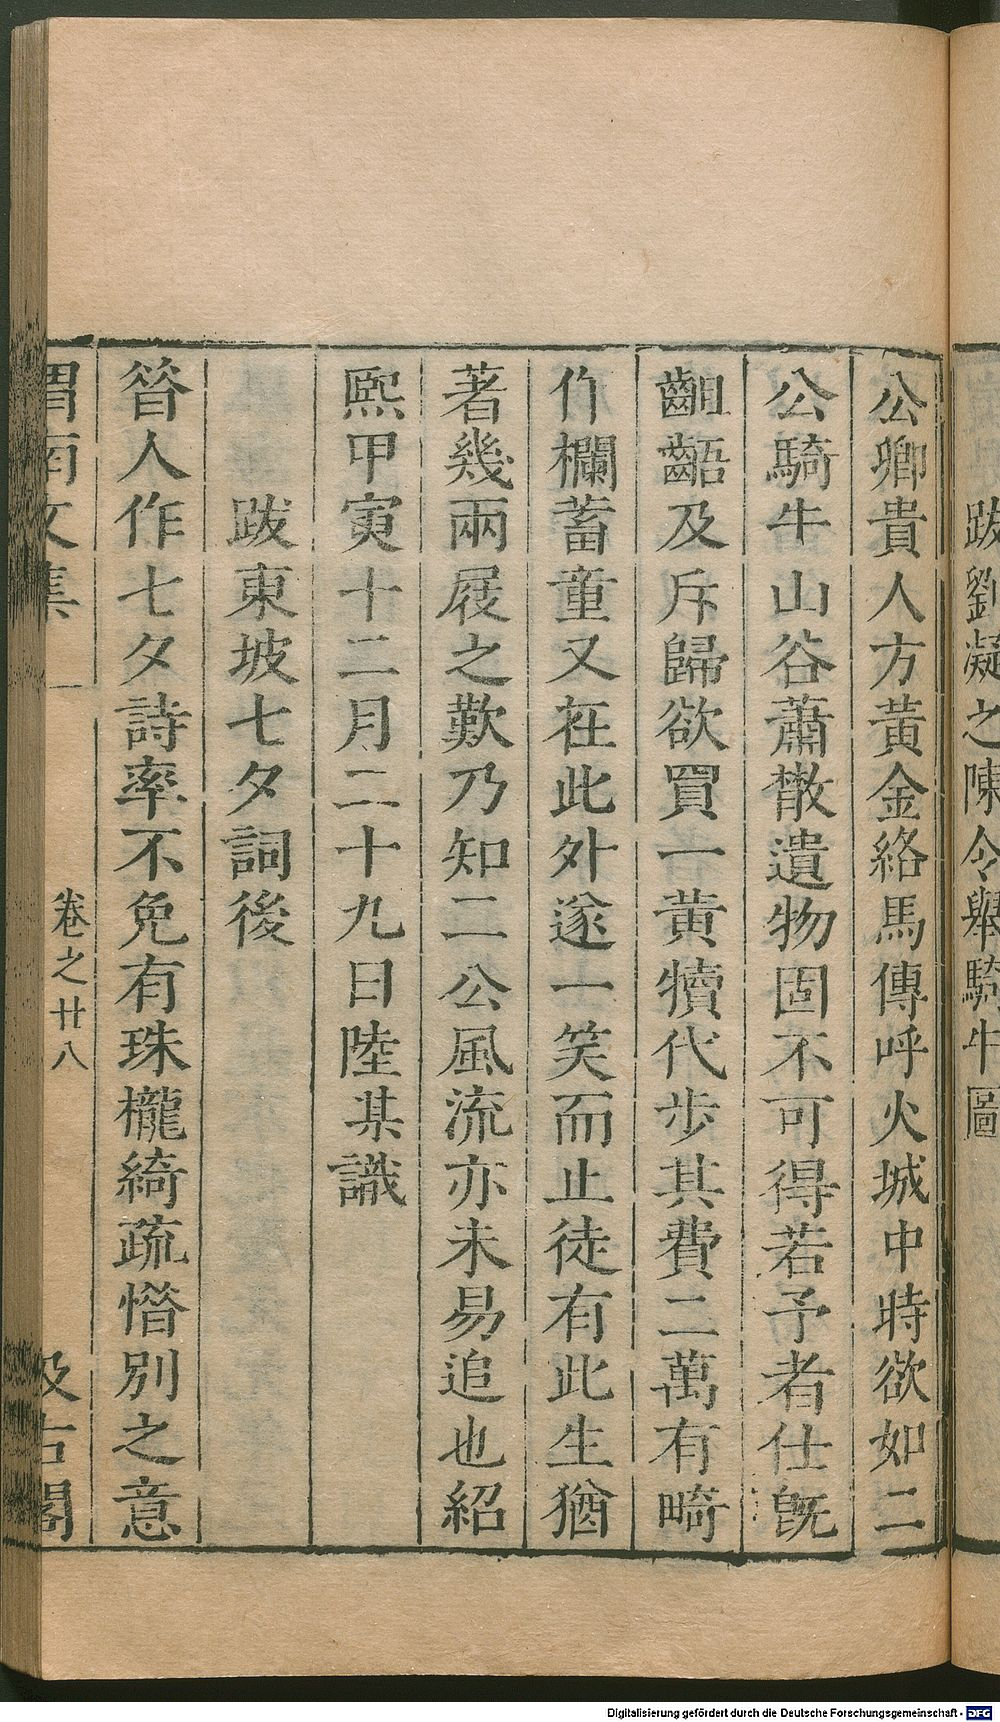 跋劉凝之陳令舉騎牛圖
公卿貴人方黃金絡馬傳呼火城中時欲如二
公騎牛山谷蕭散遺物固不可得若予者仕旣
齟齬及斥歸欲買一黃犢代步其費二萬有畸
作欄蓄童又在此外遂一笑而止徒有此生猶
著幾兩屐之歎乃知二公風流亦未易追也紹
熙甲寅十二月二十九日陸某識
跋東坡七夕詞後
昝人作七夕詩率不免有珠櫳綺疏惜別之意
渭南文集
卷之廿八
汲古閣
Digitalisierung gefördert durch die Deutsche Forschungsgemeinschaft - DFG